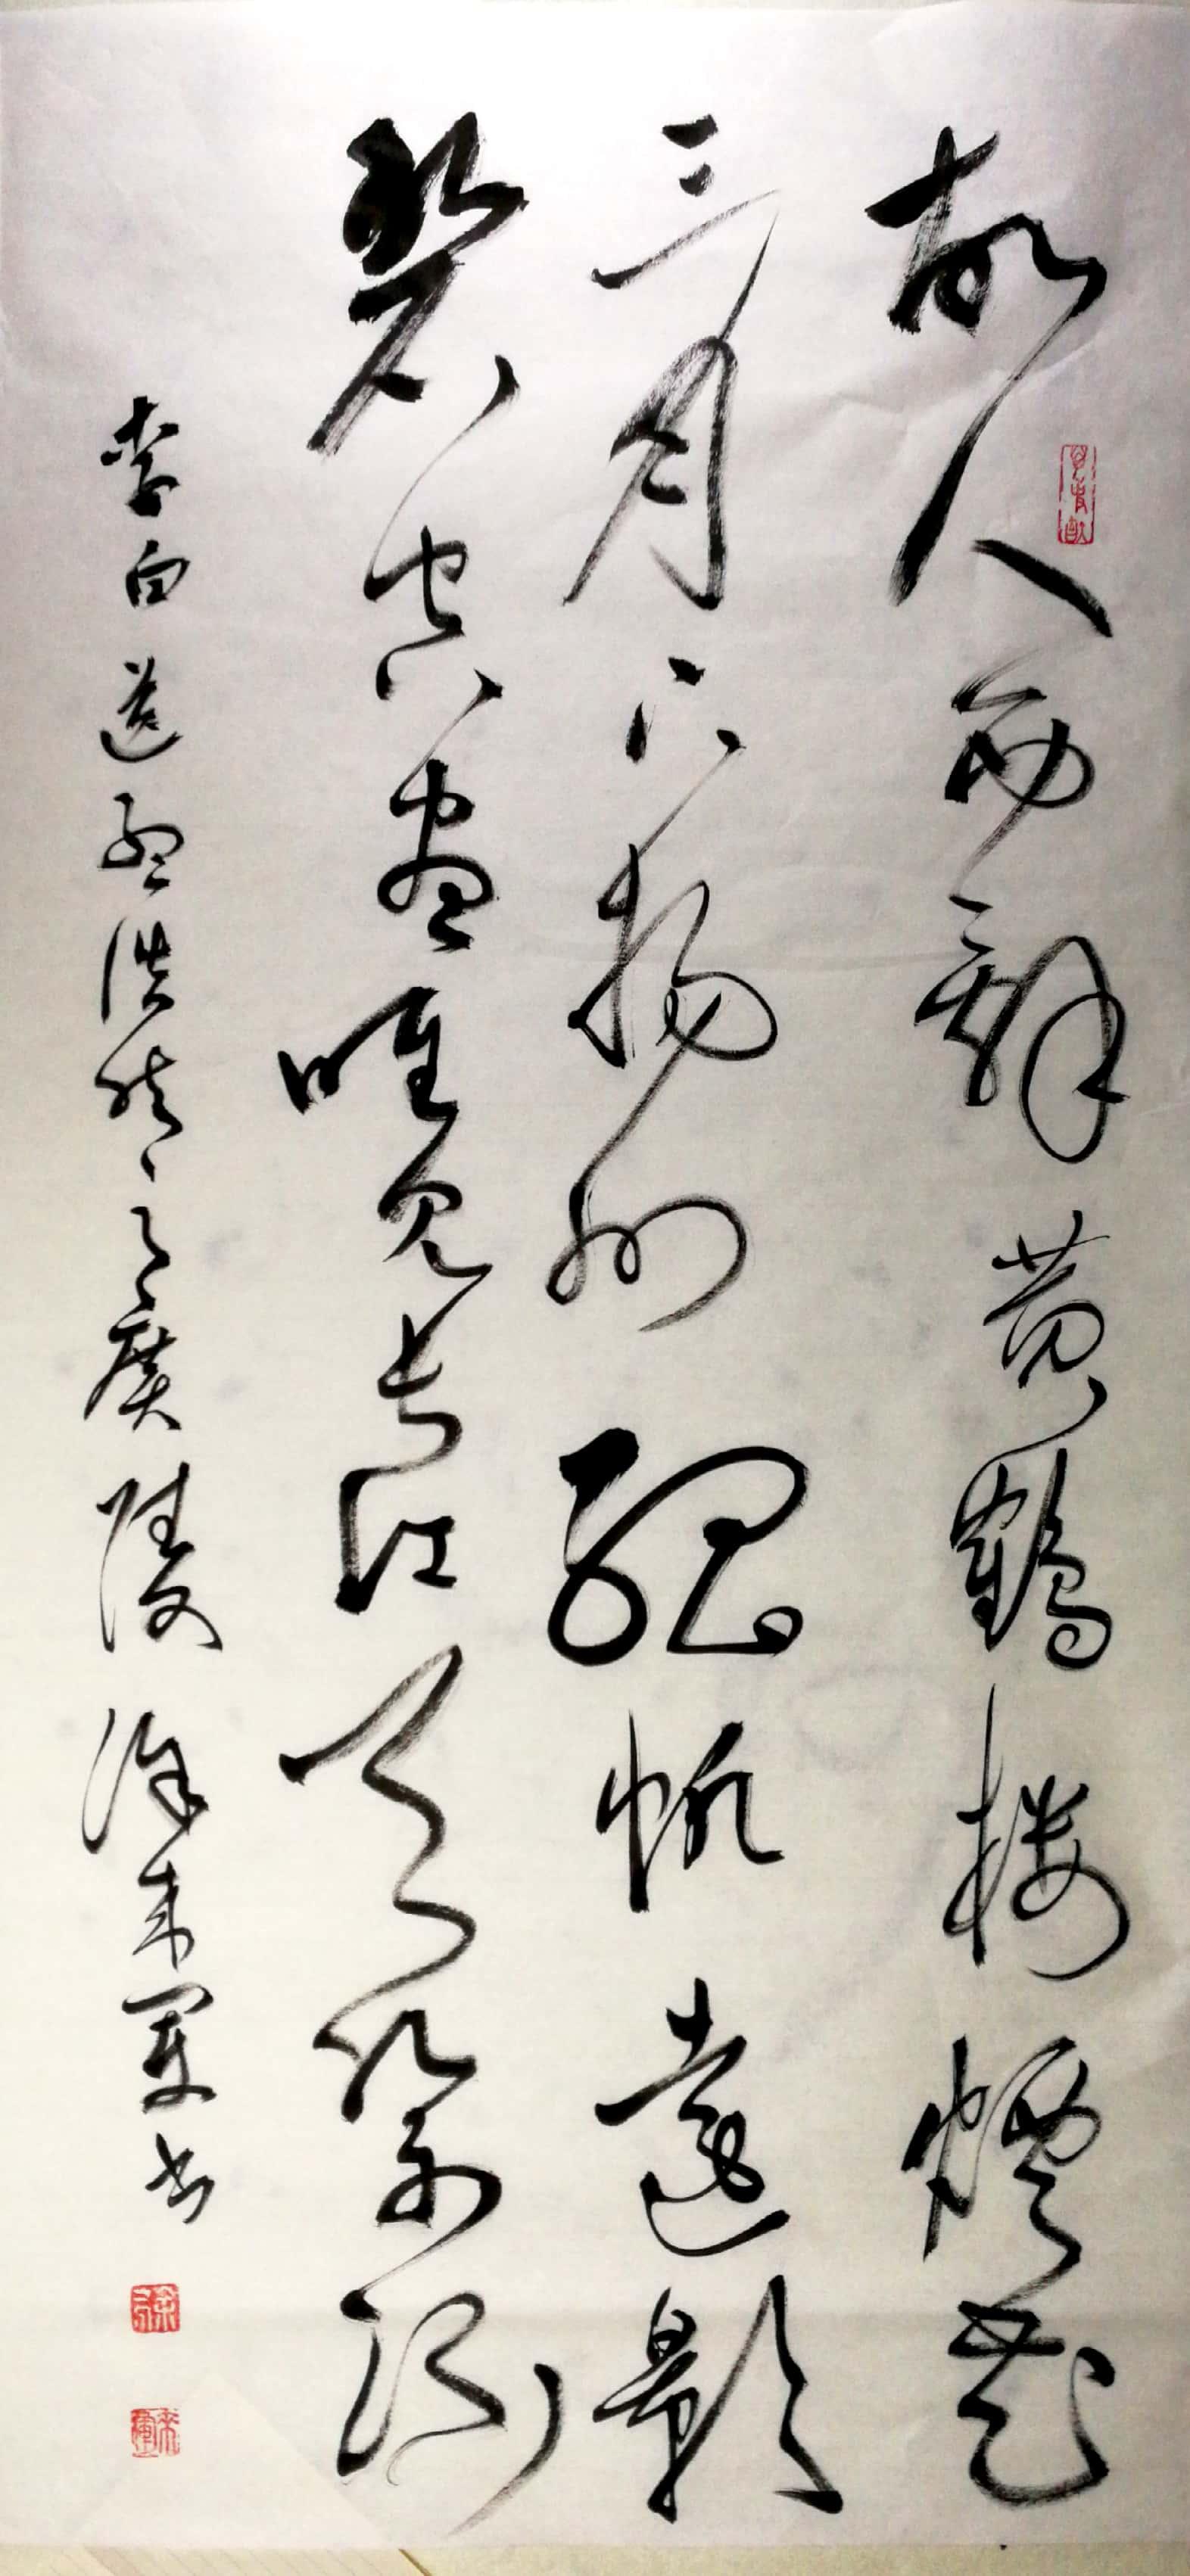 故人西辭黃鶴樓煙花
三月下揚州孤帆遠影
碧空盡唯見長江天際流
李白送孟浩然之廣陵 徐來軍書